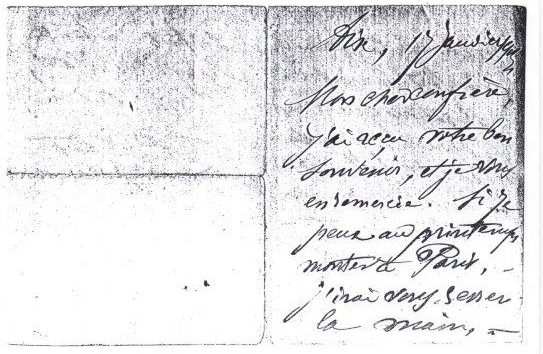 Aix, 17 janvier
Mon cher confrère,
j'ai reçu votre bon
souvenir, et je vous
en remercie. Si je
peux au printemps
monter à Paris, –
j'irai vous serrer
la main, –